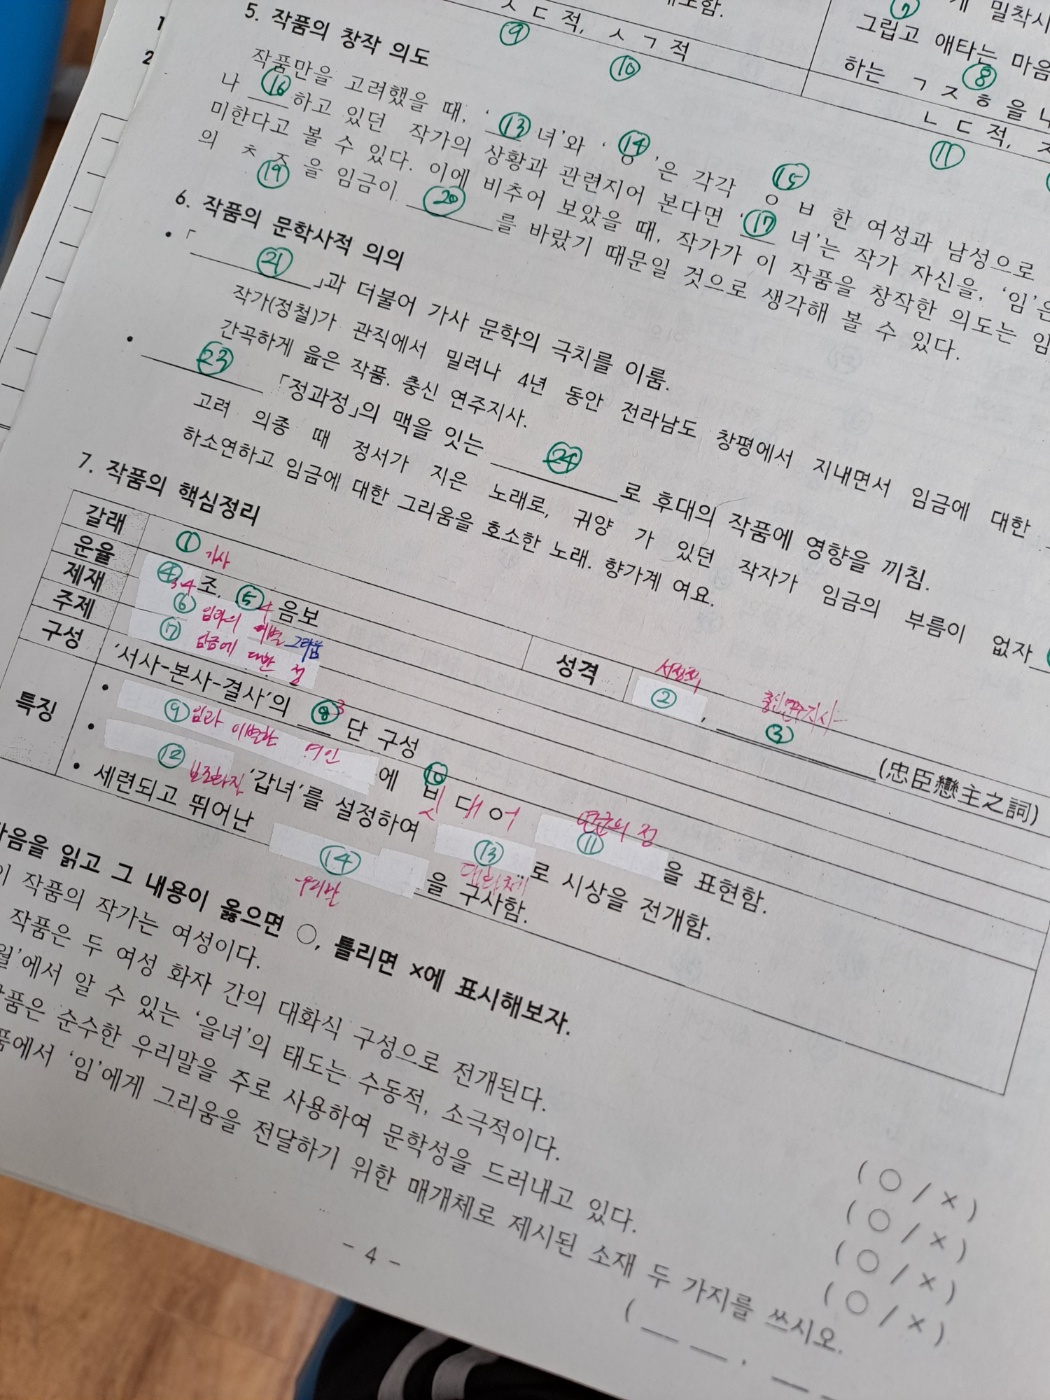 1
2
ㅅㄷ적, ㅅㄱ적
⑨ ⑩
게 밀착시
그립고 애타는 마음
⑧
하는 ㄱㅈㅎ을
ㄴㄷ적,
⑪
5. 작품의 창작 의도
작품만을 고려했을 때, '⑬녀'와 '⑭'은 각각 ⑮ㅇㅂ한 여성과 남성으로
나 ⑯하고 있던 작가의 상황과 관련지어 본다면 '⑰녀'는 작가 자신을, '임'은
미한다고 볼 수 있다. 이에 비추어 보았을 때, 작가가 이 작품을 창작한 의도는 임
의 ㅊㅈ을 임금이 ⑳를 바랐기 때문일 것으로 생각해 볼 수 있다.
⑲
6. 작품의 문학사적 의의
• 「㉑」과 더불어 가사 문학의 극치를 이룸.
작가(정철)가 관직에서 밀려나 4년 동안 전라남도 창평에서 지내면서 임금에 대한
간곡하게 읊은 작품. 충신 연주지사.
• ㉓ 「정과정」의 맥을 잇는 ㉔로 후대의 작품에 영향을 끼침.
고려 의종 때 정서가 지은 노래로, 귀양 가 있던 작자가 임금의 부름이 없자
하소연하고 임금에 대한 그리움을 호소한 노래. 향가계 여요.
7. 작품의 핵심정리
갈래 ① 가사 성격 ② 서정적, ③ 충신연주지사 (忠臣戀主之詞)
운율 ④ 3·4 조, ⑤ 4 음보
제재 ⑥ 임과의 이별 그리움
주제 ⑦ 임금에 대한 정
구성 '서사-본사-결사'의 ⑧ 3 단 구성
특징 • ⑨ 임과 이별한 여인에 ⑩ 빗대어 ⑪ 연군의 정을 표현함.
• ⑫ 보조화자 '갑녀'를 설정하여 ⑬ 대화체로 시상을 전개함.
• 세련되고 뛰어난 ⑭ 우리말을 구사함.
다음을 읽고 그 내용이 옳으면 ○, 틀리면 ×에 표시해보자.
이 작품의 작가는 여성이다. (○/×)
작품은 두 여성 화자 간의 대화식 구성으로 전개된다. (○/×)
월'에서 알 수 있는 '을녀'의 태도는 수동적, 소극적이다. (○/×)
작품은 순수한 우리말을 주로 사용하여 문학성을 드러내고 있다. (○/×)
품에서 '임'에게 그리움을 전달하기 위한 매개체로 제시된 소재 두 가지를 쓰시오.
(__ __, __
- 4 -